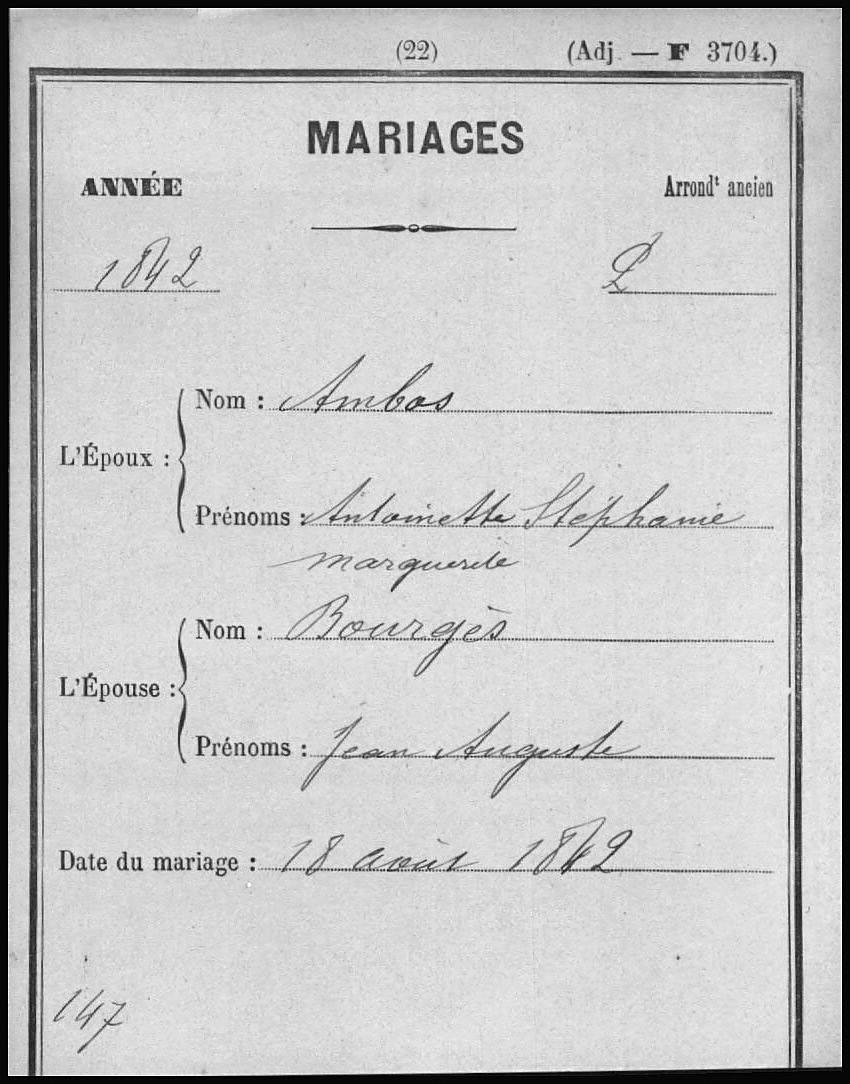 (22) (Adj. — F 3704.)
MARIAGES
ANNÉE Arrondt ancien
1842 2
L'Époux :
Nom : Ambos
Prénoms : Antoinette Stéphanie
marguerite
L'Épouse :
Nom : Bourgès
Prénoms : Jean Auguste
Date du mariage : 18 août 1842
147